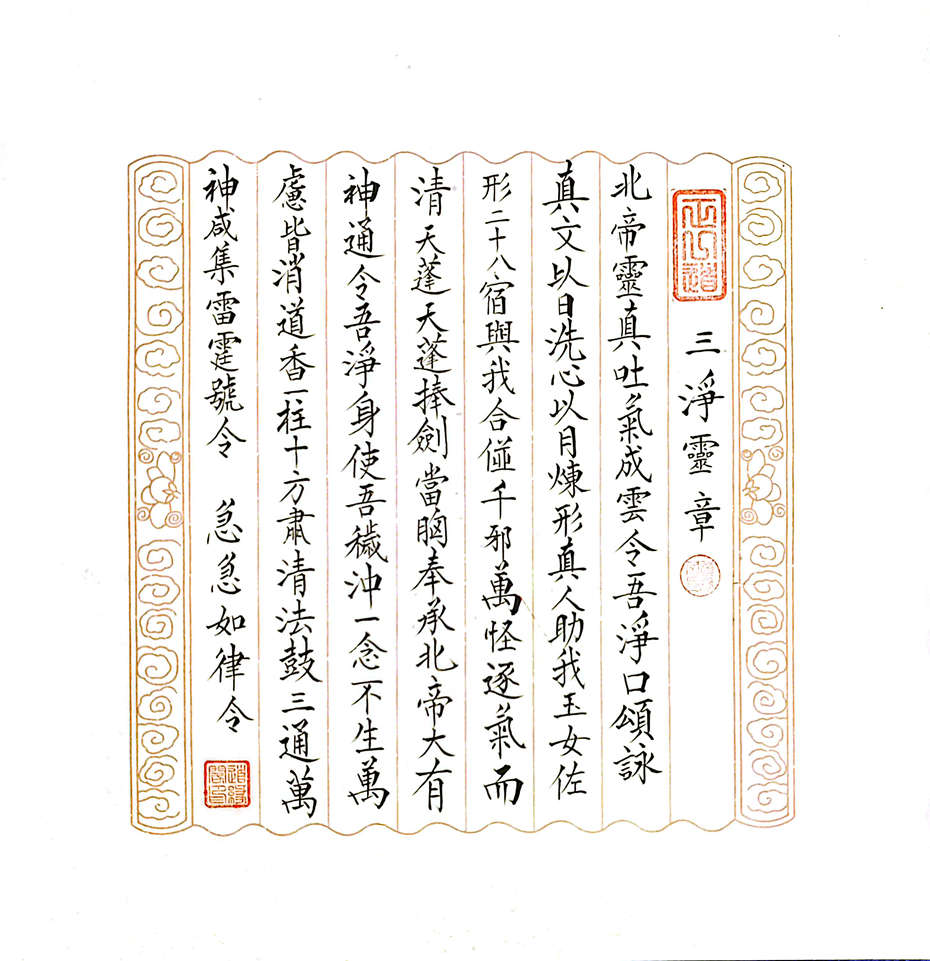 三淨靈章
北帝靈真吐氣成雲令吾淨口頌詠
真文以日洗心以月煉形真人助我玉女佐
形二十八宿與我合併千邪萬怪逐氣而
清天蓬天蓬捧劍當胸奉承北帝大有
神通令吾淨身使吾穢沖一念不生萬
慮皆消道香一柱十方肅清法鼓三通萬
神咸集雷霆號令 急急如律令